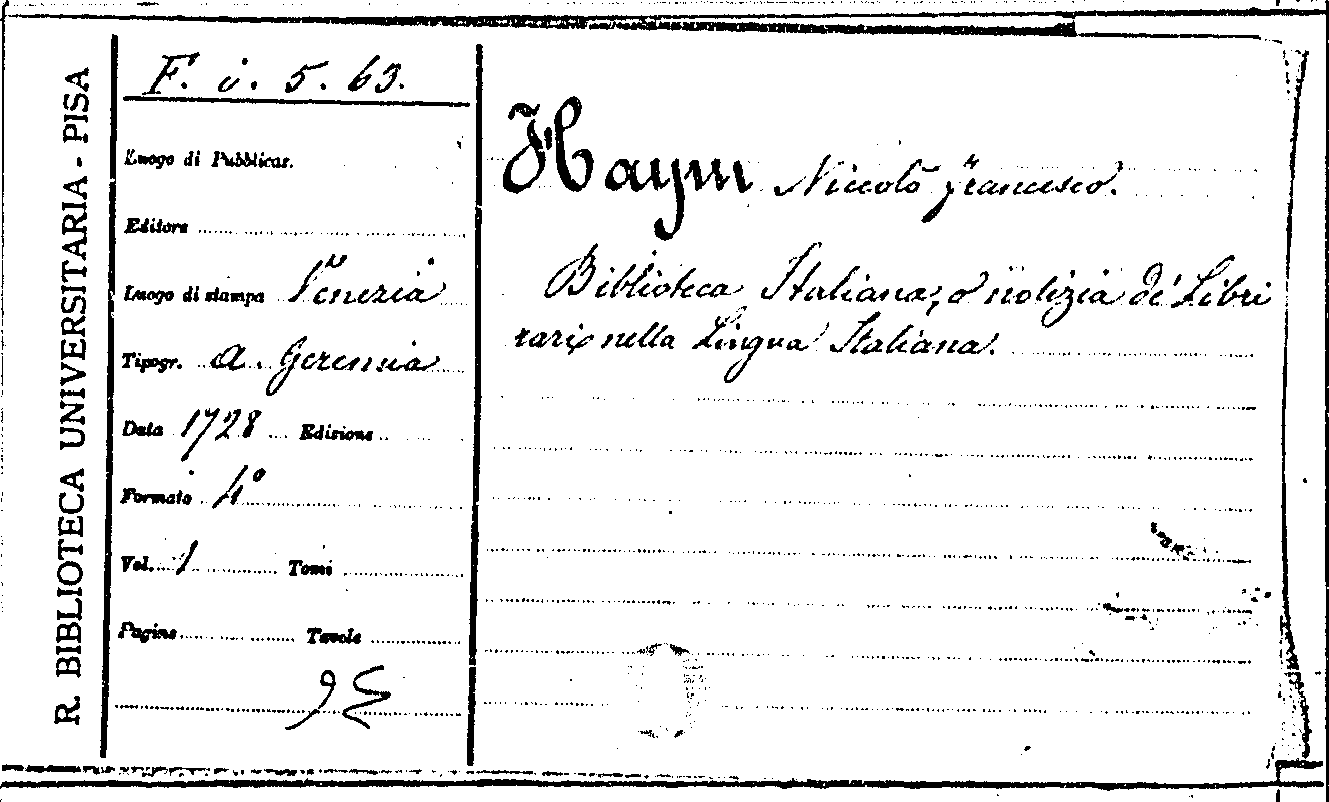 R. BIBLIOTECA UNIVERSITARIA - PISA
F. i. 5. 63.
Luogo di Pubblicaz.
Editore
Luogo di stampa Venezia
Tipogr. A. Geremia
Data 1728 Edizione
Formato 4°
Vol. 1 Tomi
Pagine Tavole
Haym Niccolò Francesco.
Biblioteca Italiana, o notizia de' Libri
rari nella Lingua Italiana.